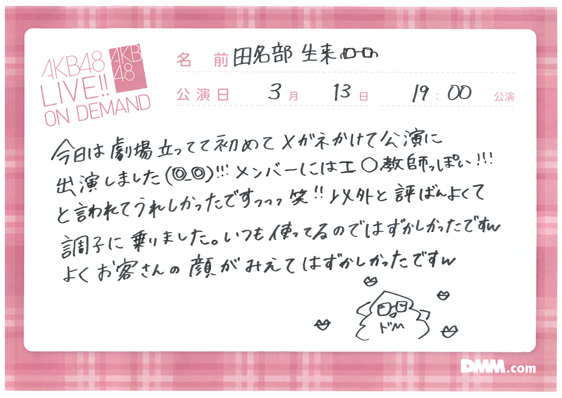 AKB48
LIVE!!
ON DEMAND
AKB
48
名 前 田名部 生来
公演日 3月 13日 19:00 公演
今日は劇場立ってて初めてメガネかけて公演に
出演しました(◎_◎)!!!メンバーにはエ〇教師っぽい!!!
と言われてうれしかったですっっっ笑!!以外と評ばんよくて
調子に乗りました。いつも使ってるのではずかしかったですw
よくお客さんの顔がみえてはずかしかったですw
ドM
DMM.com